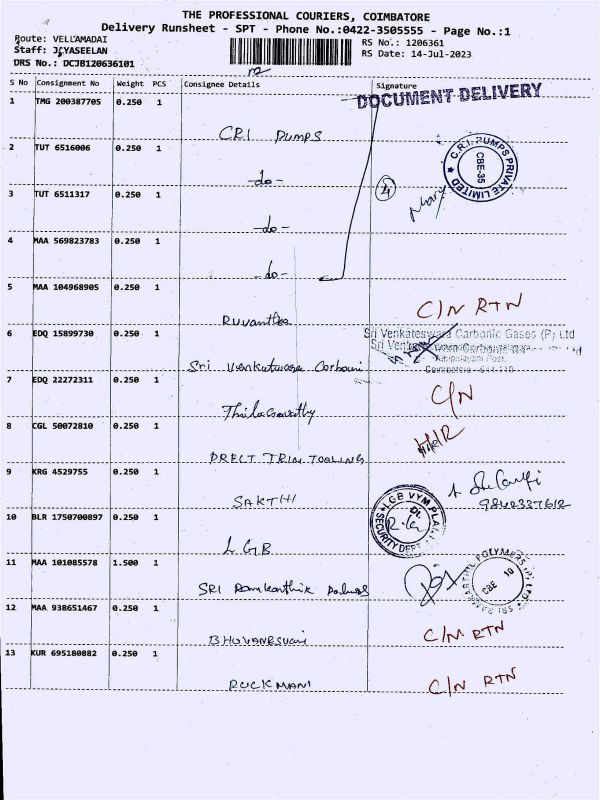 THE PROFESSIONAL COURIERS, COIMBATORE
Delivery Runsheet - SPT - Phone No.:0422-3505555 - Page No.:1
Route: VELLAMADAI
RS No.: 1206361
Staff: JEYASEELAN
RS Date: 14-Jul-2023
DRS No.: DCJB120636101
S No Consignment No Weight PCS Consignee Details Signature
DOCUMENT DELIVERY
1 TMG 200387705 0.250 1 CRI PUMPS
2 TUT 6516006 0.250 1 -do-
C.R.I. PUMPS PRIVATE LIMITED
CBE-35
3 TUT 6511317 0.250 1 -do-
4
4 MAA 569823783 0.250 1 -do-
5 MAA 104968905 0.250 1 Ruvantha C/N RTN
6 EDQ 15899730 0.250 1 Sri Venkatwara Carbonic
Sri Venkateswara Carbonic Gases (P) Ltd
7 EDQ 22272311 0.250 1 Thilagavathy C/N
8 CGL 50072810 0.250 1 PRECT TRIM TOOLING
9 KRG 4529755 0.250 1 SAKTHI
9842337612
10 BLR 1750700897 0.250 1 L.G.B
LGB VYM PLANT
SECURITY DEPT
11 MAA 101085578 1.500 1 SRI Ramkarthik Polymers
SRI RAMKARTHIC POLYMERS (P) LTD
CBE 10
12 MAA 938651467 0.250 1 BHUVANESVARI C/N RTN
13 KUR 695180882 0.250 1 RUCKMANI C/N RTN